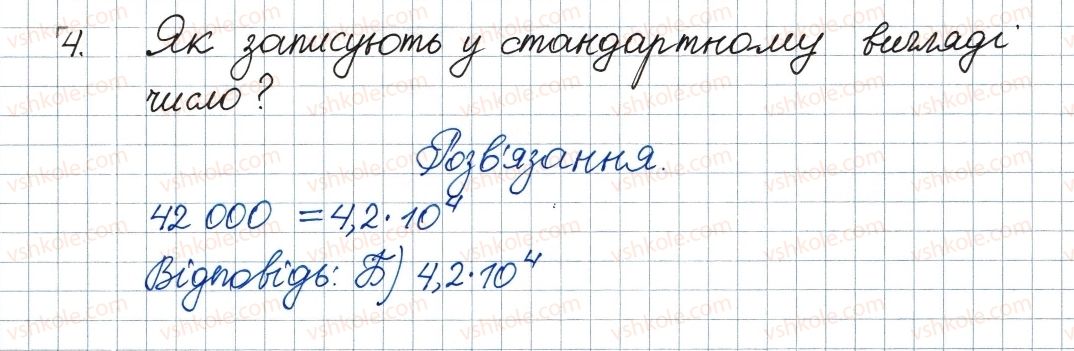 4. Як записують у стандартному вигляді
число?
Розв'язання.
42 000 = 4,2·10⁴
Відповідь: Б) 4,2·10⁴